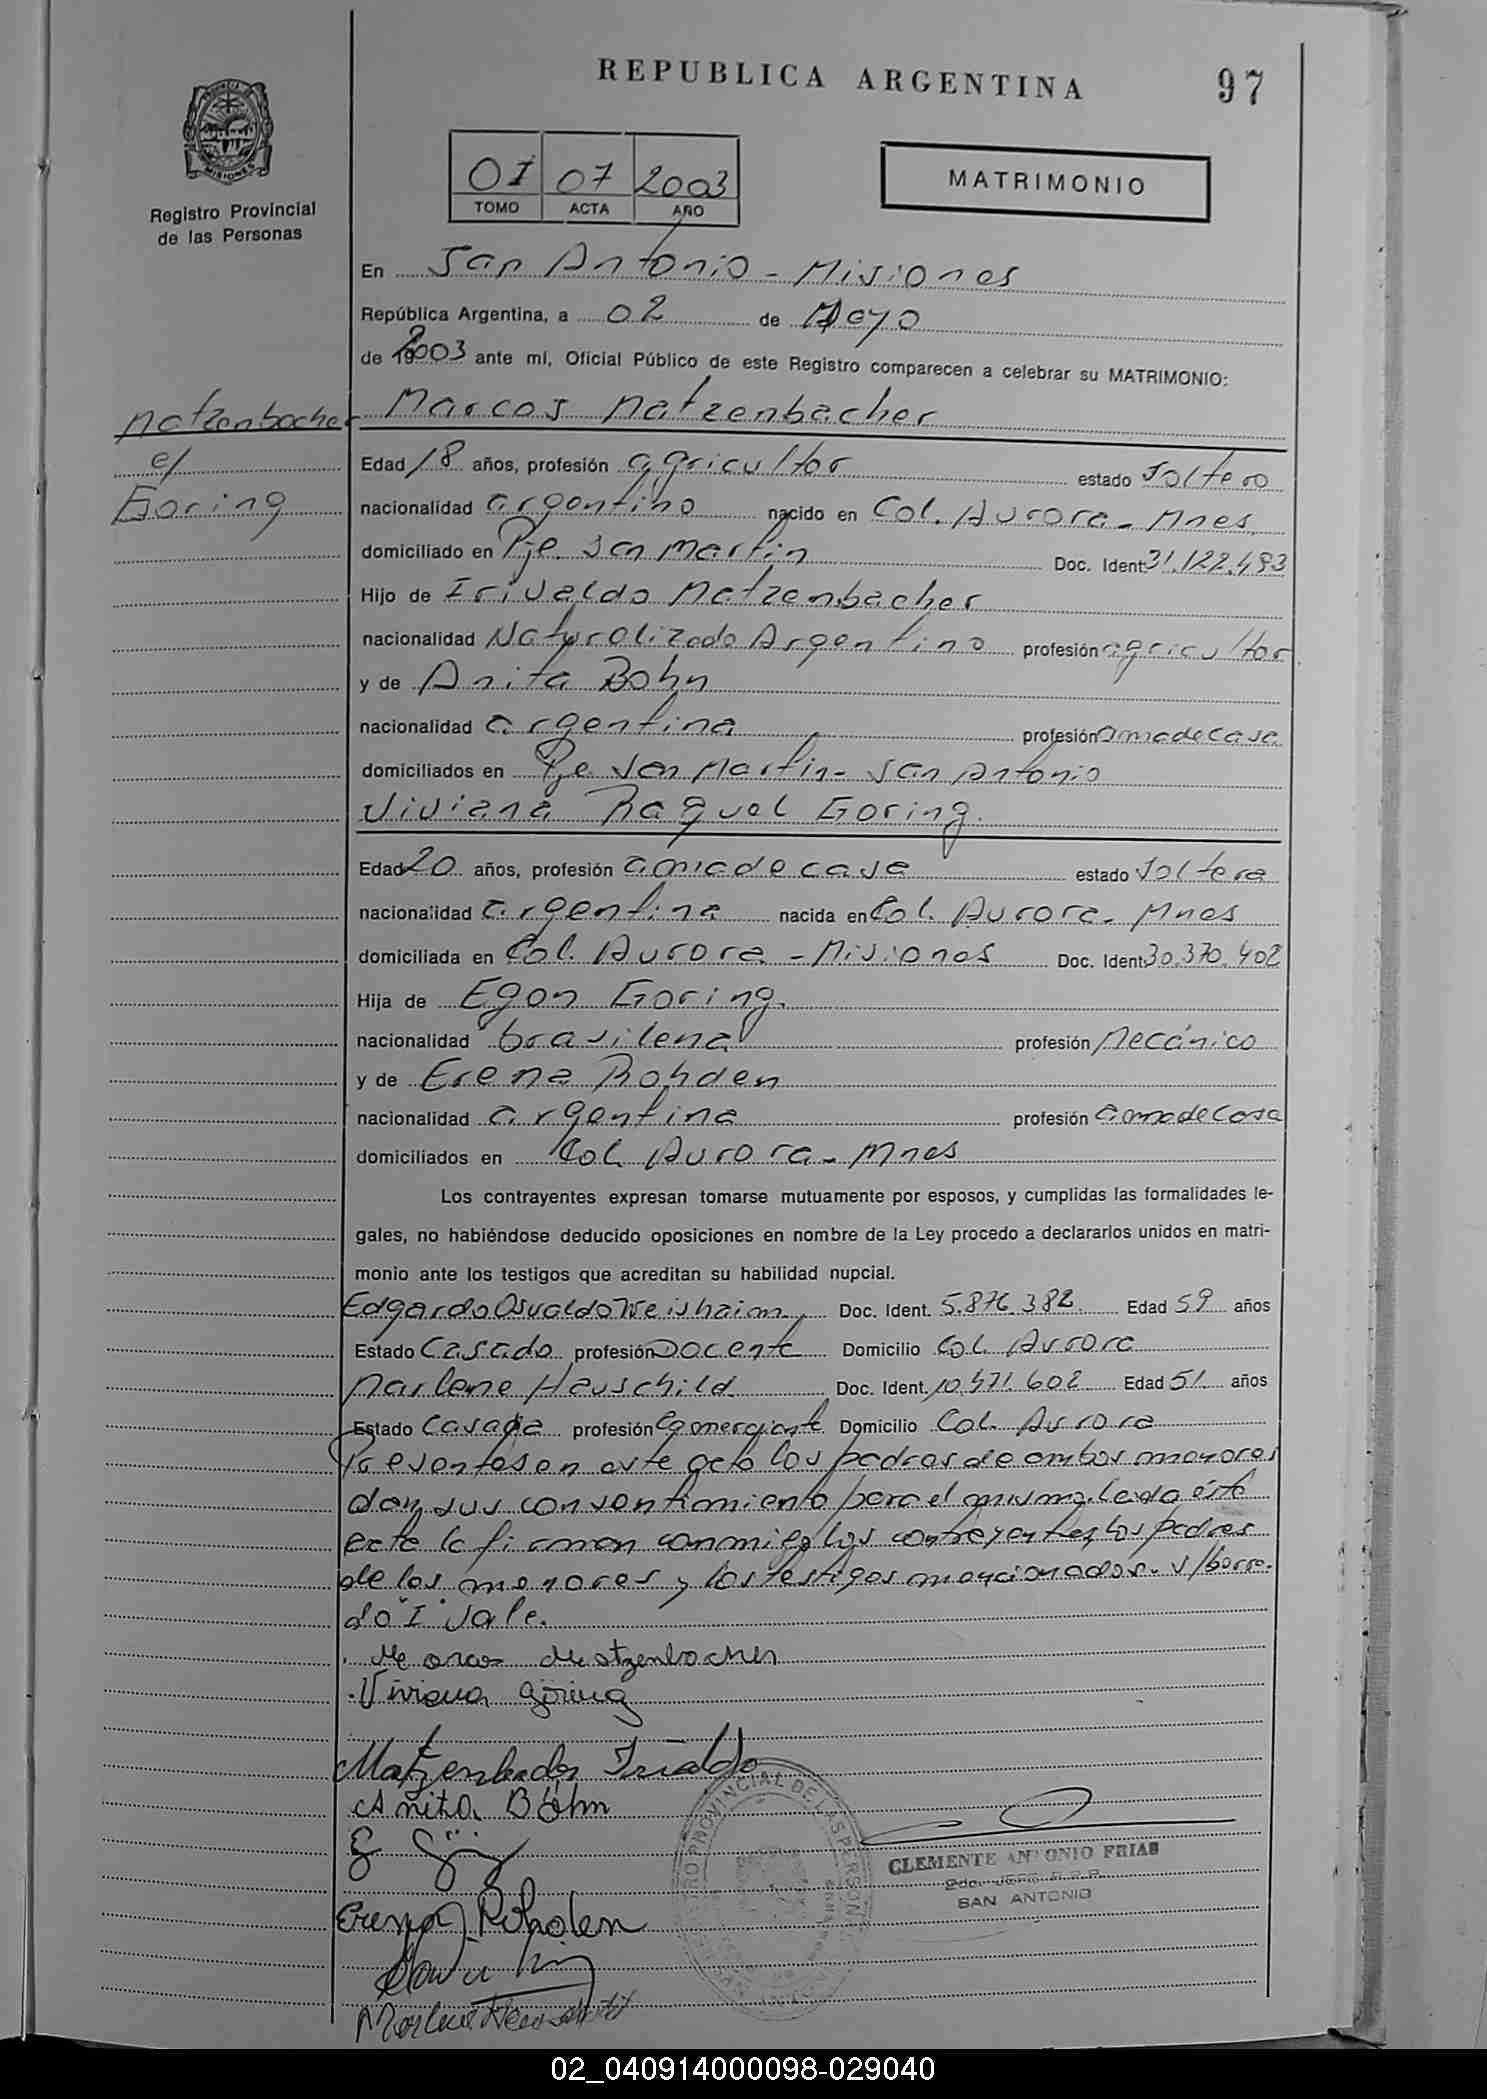 REPUBLICA ARGENTINA
97
01 07 2003
TOMO ACTA AÑO
MATRIMONIO
MISIONES
Registro Provincial
de las Personas
En San Antonio - Misiones
República Argentina, a 02 de Mayo
de 2003 ante mí, Oficial Público de este Registro comparecen a celebrar su MATRIMONIO:
Matzenbacher
c/
Goring
Marcos Matzenbacher
Edad 18 años, profesión agricultor estado Soltero
nacionalidad argentino nacido en Col. Aurora - Mnes
domiciliado en Pje. San Martin Doc. Ident. 31.122.493
Hijo de Irivaldo Matzenbacher
nacionalidad Naturalizado Argentino profesión agricultor
y de Anita Bohn
nacionalidad argentina profesión ama de casa
domiciliados en Pje San Martin - San Antonio
Viviana Raquel Goring.
Edad 20 años, profesión ama de casa estado Soltera
nacionalidad argentina nacida en Col. Aurora - Mnes
domiciliada en Col. Aurora - Misiones Doc. Ident. 30.370.402
Hija de Egon Goring.
nacionalidad brasilena profesión Mecánico
y de Erena Rohden
nacionalidad argentina profesión ama de casa
domiciliados en Col. Aurora - Mnes
Los contrayentes expresan tomarse mutuamente por esposos, y cumplidas las formalidades le-
gales, no habiéndose deducido oposiciones en nombre de la Ley procedo a declararlos unidos en matri-
monio ante los testigos que acreditan su habilidad nupcial.
Edgardo Osvaldo Weishaim Doc. Ident. 5.876.382 Edad 59 años
Estado Casado profesión Docente Domicilio Col. Aurora
Marlene Hauschild Doc. Ident. 10.471.602 Edad 51 años
Estado Casada profesión Comerciante Domicilio Col. Aurora
Presentes en este acto los padres de ambos menores
dan sus consentimiento para el mismo. Leida ésta
acta la firman conmigo los contrayentes, los padres
de los menores y los testigos mencionados. s/borra-
do "I" Vale.
Marcos Matzenbacher
Viviana Göring
Matzenbacher Irivaldo
Anita Böhn
E Göring
Erena Rohden
Marlene Hauschild
REGISTRO PROVINCIAL DE LAS PERSONAS
CLEMENTE ANTONIO FRIAS
SAN ANTONIO
02_040914000098-029040